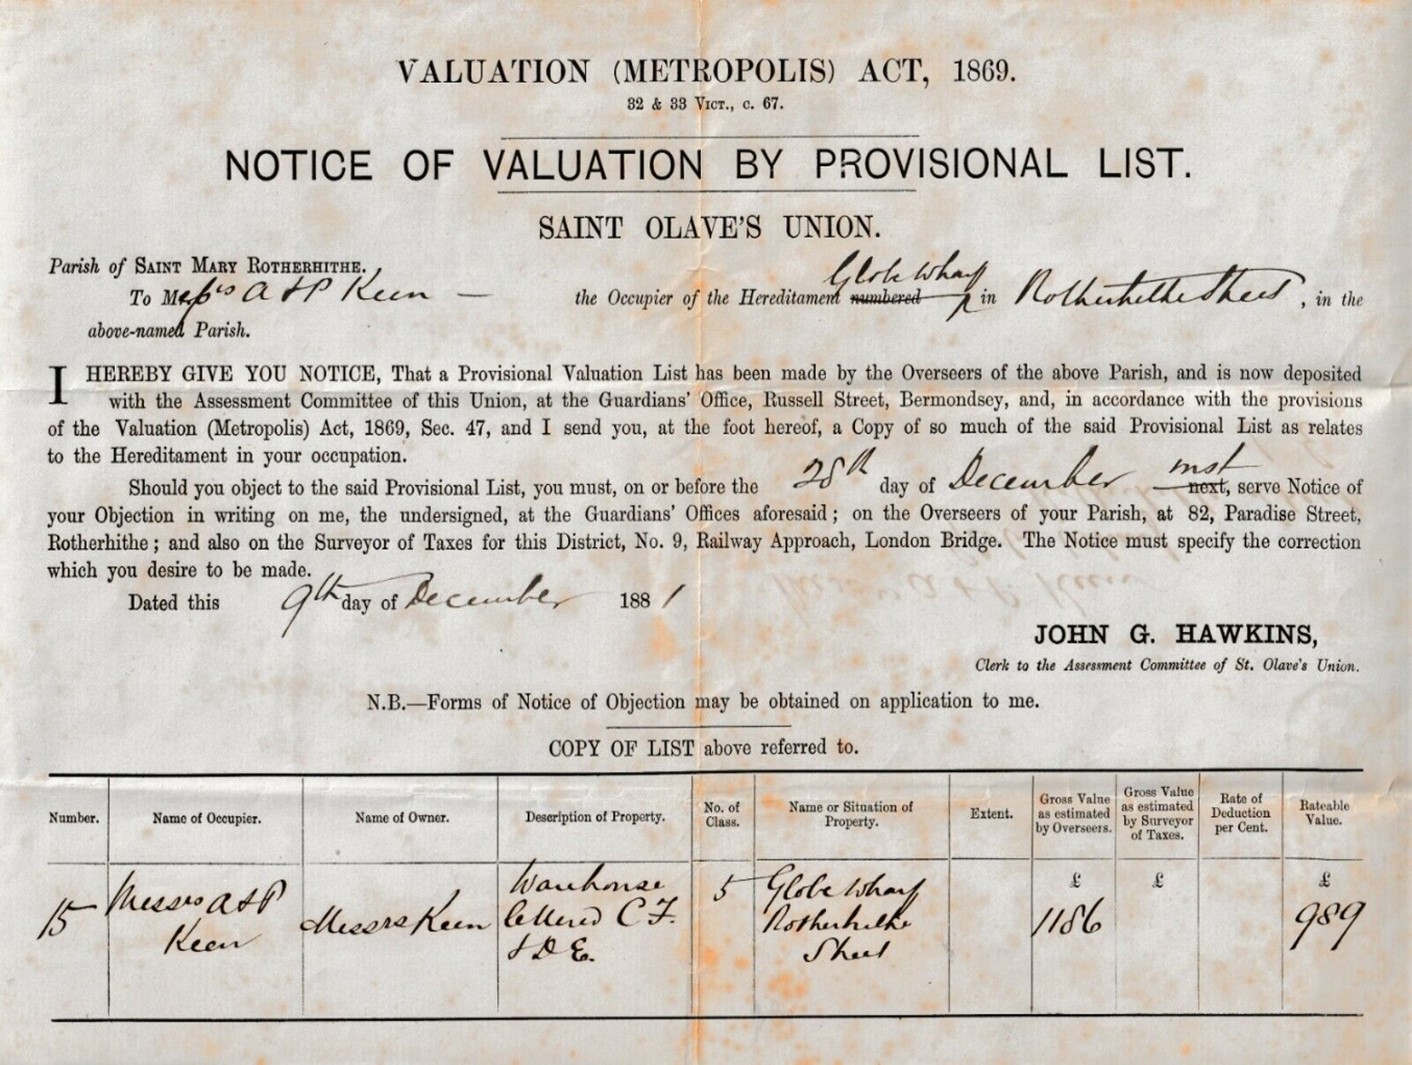 VALUATION (METROPOLIS) ACT, 1869.
32 & 33 VICT., C. 67.
NOTICE OF VALUATION BY PROVISIONAL LIST.
SAINT OLAVE'S UNION.
Parish of SAINT MARY ROTHERHITHE.
To Messrs A & P Keen — the Occupier of the Hereditament numbered Globe Wharf in Rotherhithe Street, in the
above-named Parish.
I HEREBY GIVE YOU NOTICE, That a Provisional Valuation List has been made by the Overseers of the above Parish, and is now deposited
with the Assessment Committee of this Union, at the Guardians' Office, Russell Street, Bermondsey, and, in accordance with the provisions
of the Valuation (Metropolis) Act, 1869, Sec. 47, and I send you, at the foot hereof, a Copy of so much of the said Provisional List as relates
to the Hereditament in your occupation.
Should you object to the said Provisional List, you must, on or before the 28th day of December inst next, serve Notice of
your Objection in writing on me, the undersigned, at the Guardians' Offices aforesaid; on the Overseers of your Parish, at 82, Paradise Street,
Rotherhithe; and also on the Surveyor of Taxes for this District, No. 9, Railway Approach, London Bridge. The Notice must specify the correction
which you desire to be made.
Dated this 9th day of December 1881
JOHN G. HAWKINS,
Clerk to the Assessment Committee of St. Olave's Union.
N.B.—Forms of Notice of Objection may be obtained on application to me.
COPY OF LIST above referred to.
Number. Name of Occupier. Name of Owner. Description of Property. No. of Class. Name or Situation of Property. Extent. Gross Value as estimated by Overseers. Gross Value as estimated by Surveyor of Taxes. Rate of Deduction per Cent. Rateable Value.
£ £ £
15 Messrs A & P Keen Messrs Keen Warehouse lettered C F. & D E. 5 Globe Wharf Rotherhithe Street 1186 989